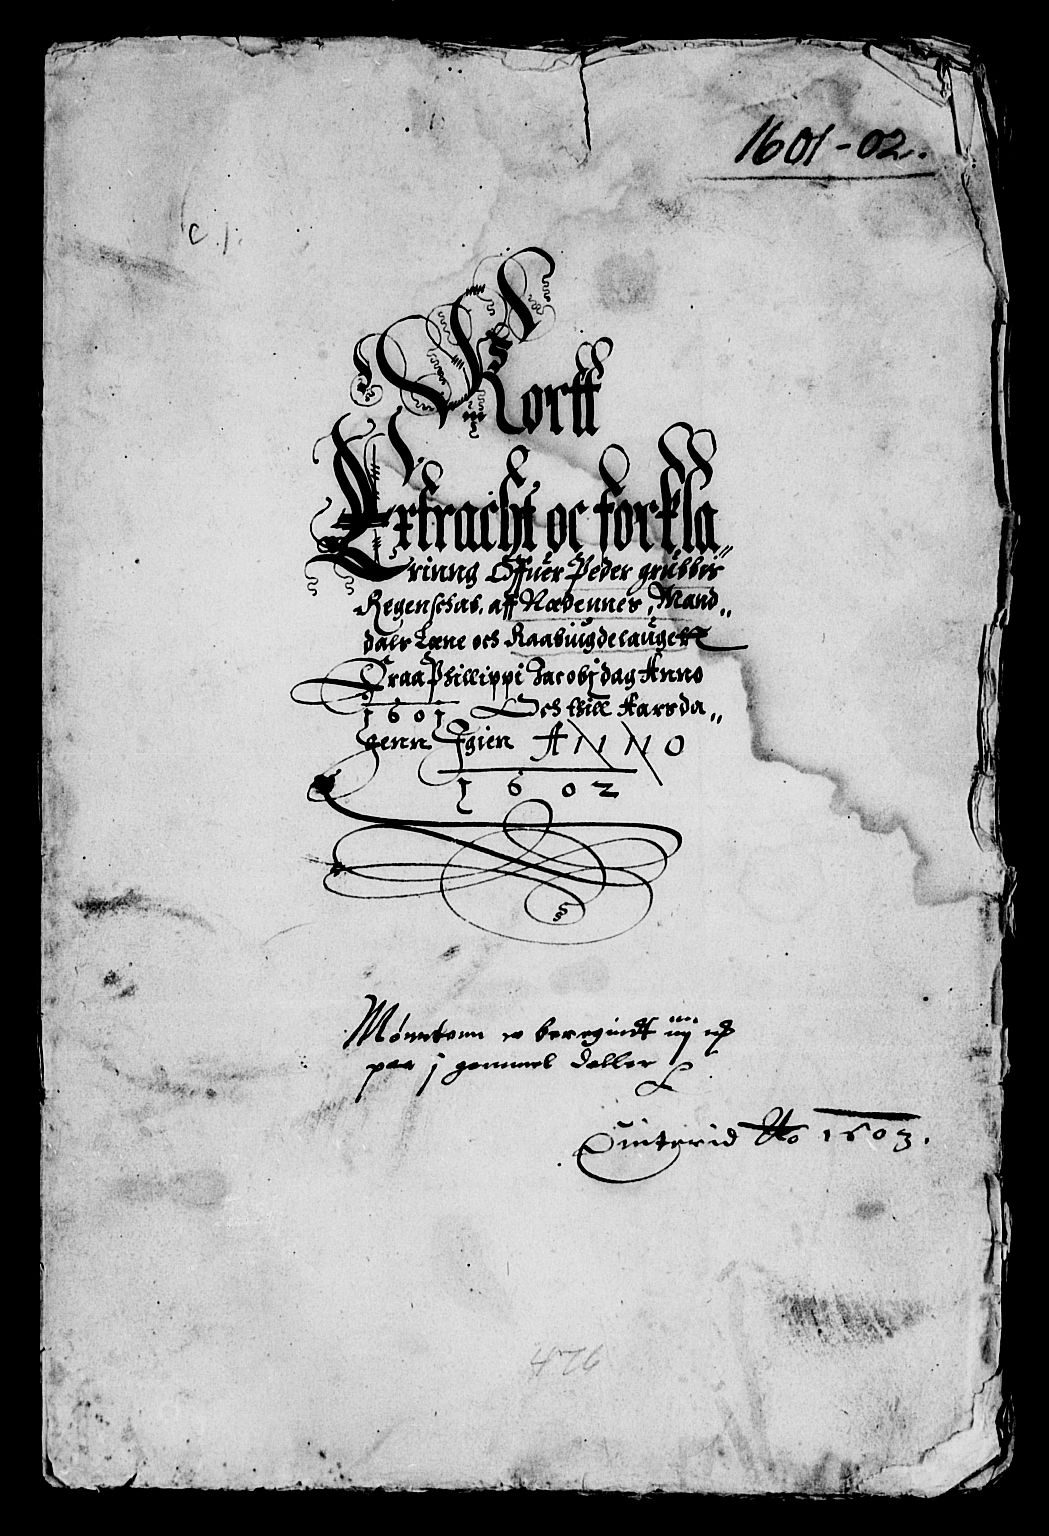 1601-02.
C. j.
Kortt
Extracht oc forkla„
rinng Offuer Peder grubbis
Regenschab, aff Nædennes, Mand„
dals Læne och Raabiugdelauget
Fraa Phillippi Jacobj dag Anno
1601 Och thill Aarsda„
genn Igien ANNO
1602
Mønnten er beregindt iiij
paa j gammel daller
1603.
476